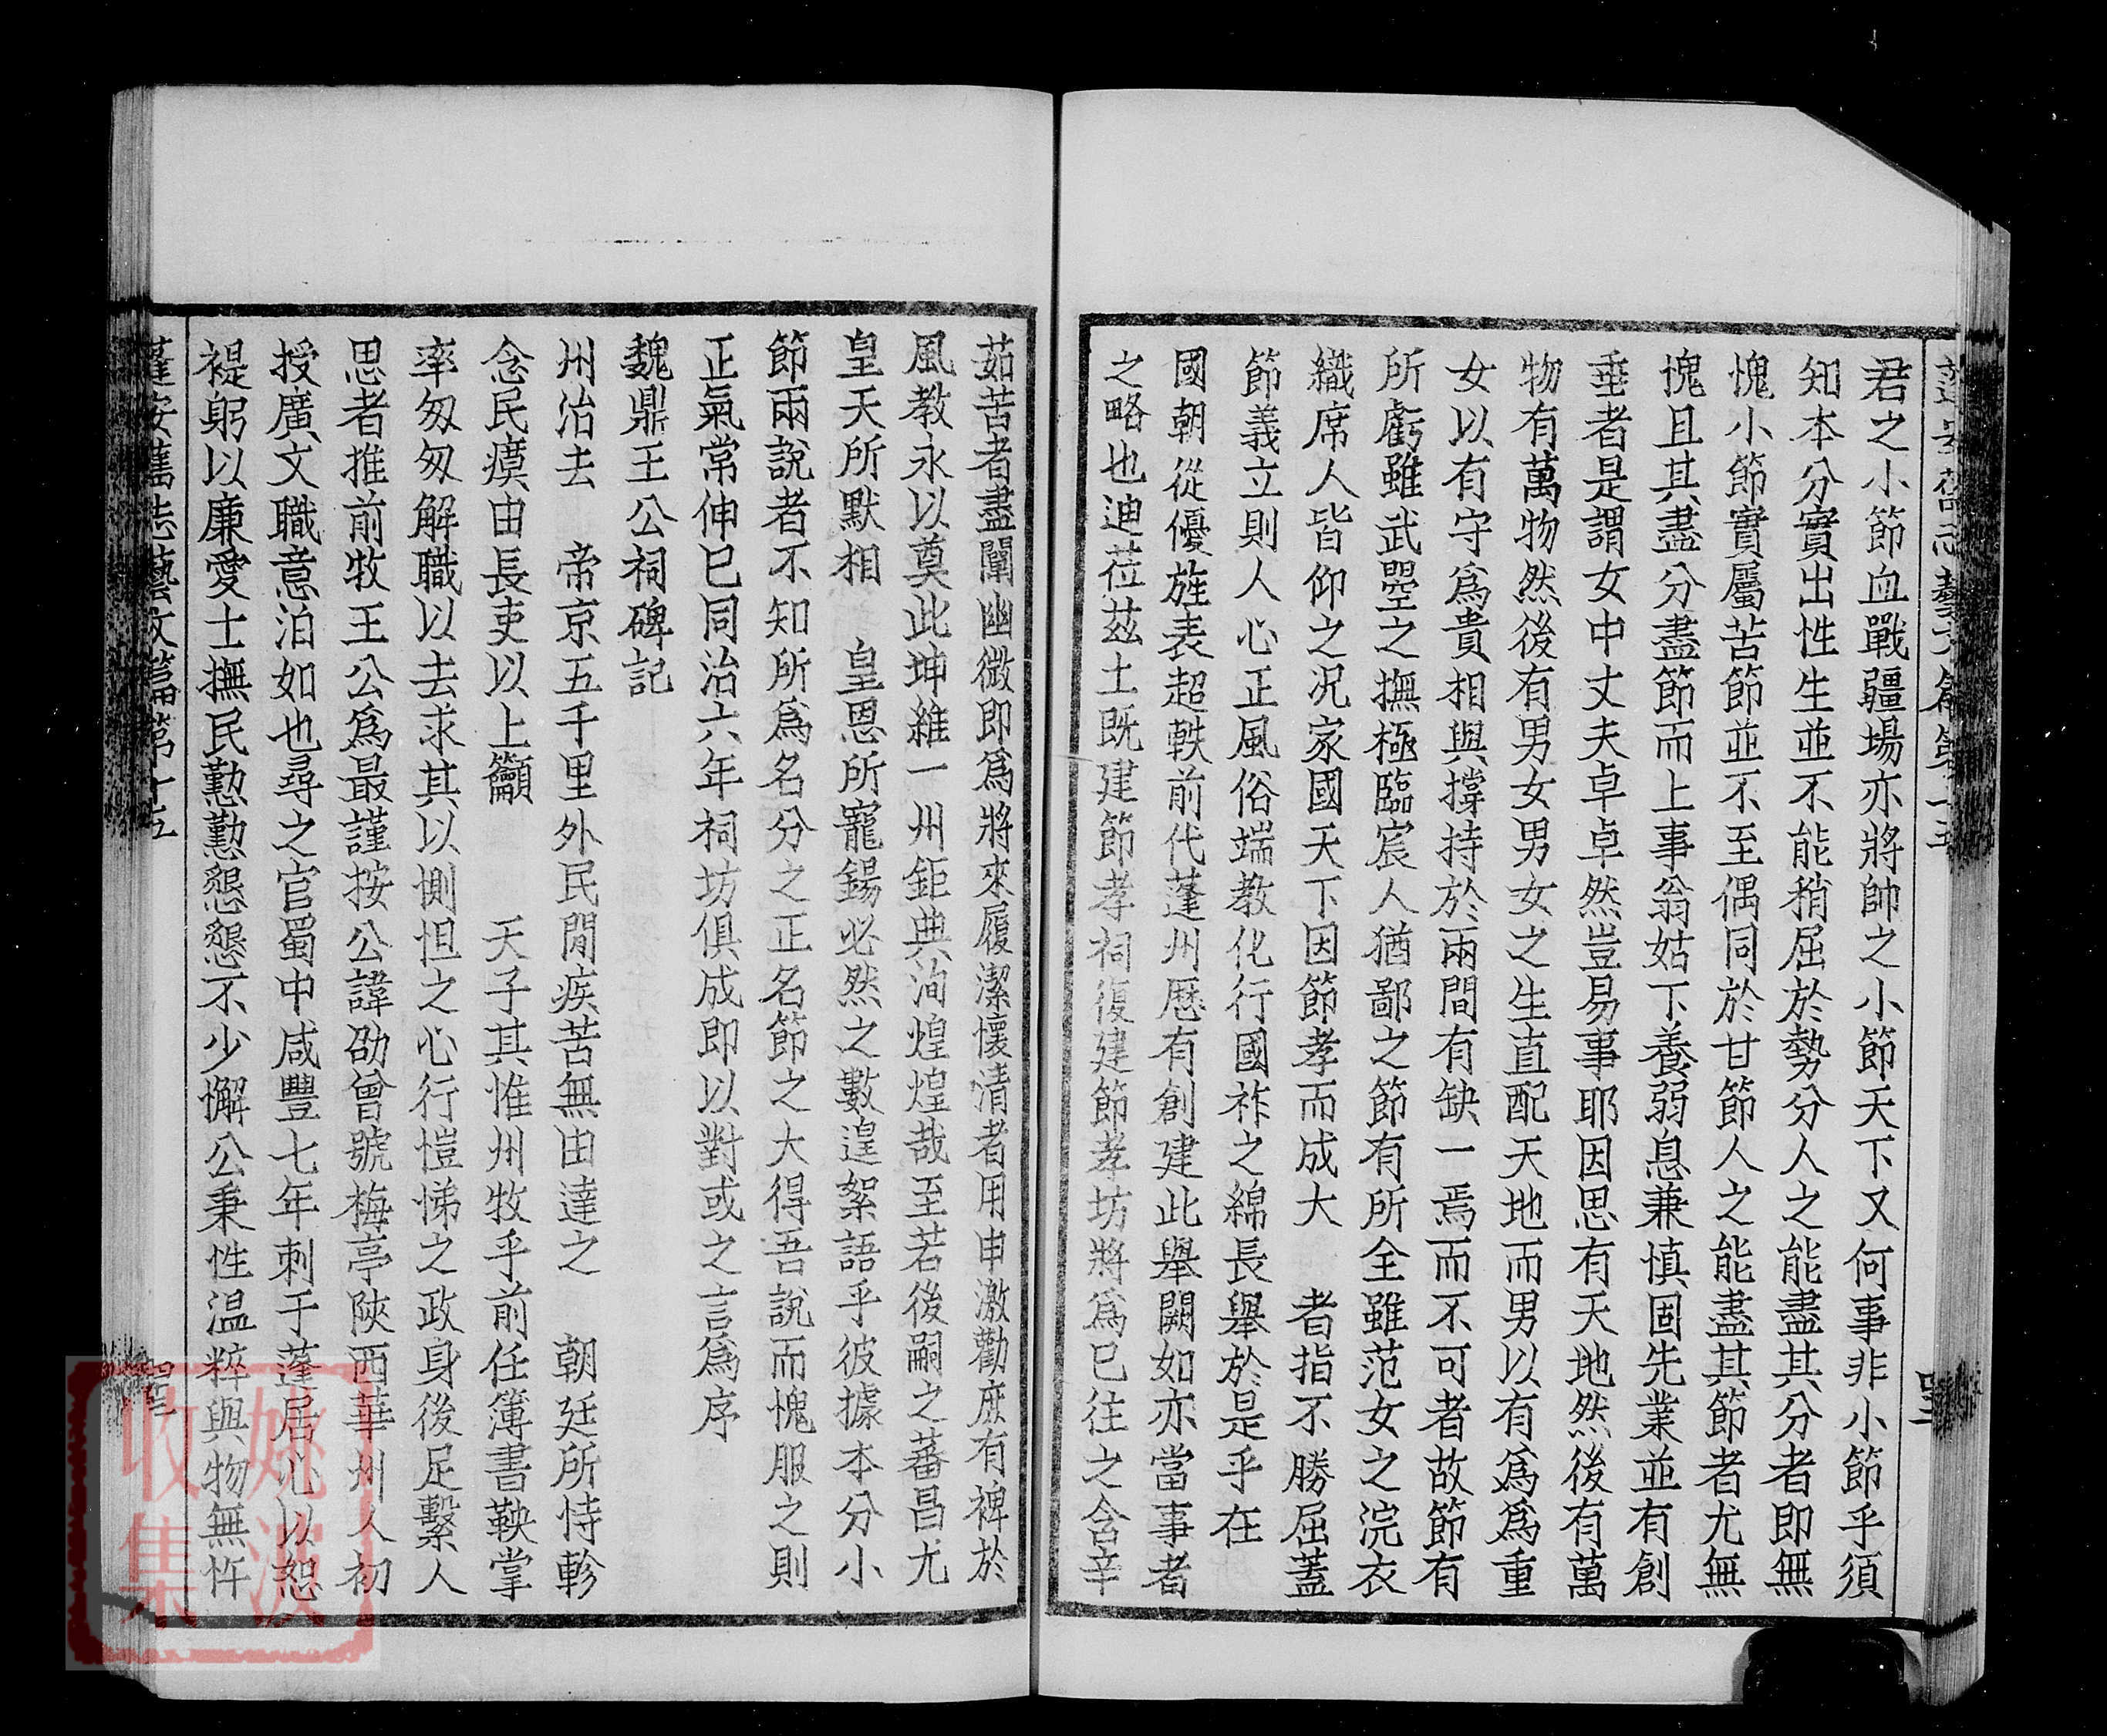 君之小節血戰疆場亦將帥之小節天下又何事非小節乎須
知本分實出性生並不能稍屈於勢分人之能盡其分者即無
愧小節實屬苦節並不至偶同於甘節人之能盡其節者尤無
愧且其盡分盡節而上事翁姑下養弱息兼慎固先業並有創
垂者是謂女中丈夫卓卓然豈易事耶因思有天地然後有萬
物有萬物然後有男女男女之生直配天地而男以有爲爲重
女以有守爲貴相與撐持於兩間有缺一焉而不可者故節有
所虧雖武曌之撫極臨宸人猶鄙之節有所全雖范女之浣衣
織席人皆仰之況家國天下因節孝而成大 者指不勝屈蓋
節義立則人心正風俗端教化行國祚之綿長舉於是乎在
國朝從優旌表超軼前代蓬州歷有創建此舉闕如亦當事者
之略也迪莅茲土既建節孝祠復建節孝坊將爲已往之含辛
茹苦者盡闡幽微即爲將來履潔懷清者用申激勸庶有裨於
風教永以奠此坤維一州鉅典洵煌煌哉至若後嗣之蕃昌尤
皇天所默相 皇恩所寵錫必然之數遑絮語乎彼據本分小
節兩說者不知所爲名分之正名節之大得吾說而愧服之則
正氣常伸已同治六年祠坊俱成即以對或之言爲序
魏鼎王公祠碑記
州治去 帝京五千里外民閒疾苦無由達之 朝廷所恃軫
念民瘼由長吏以上籲 天子其惟州牧乎前任簿書鞅掌
率匆匆解職以去求其以惻怛之心行愷悌之政身後足繫人
思者推前牧王公爲最謹按公諱劭曾號梅亭陝西華州人初
授廣文職意泊如也尋之官蜀中咸豐七年刺于蓬居心以恕
禔躬以廉愛士撫民懃懃懇懇不少懈公秉性温粹與物無忤
蓬安舊志藝文篇第十五
姚波
收集